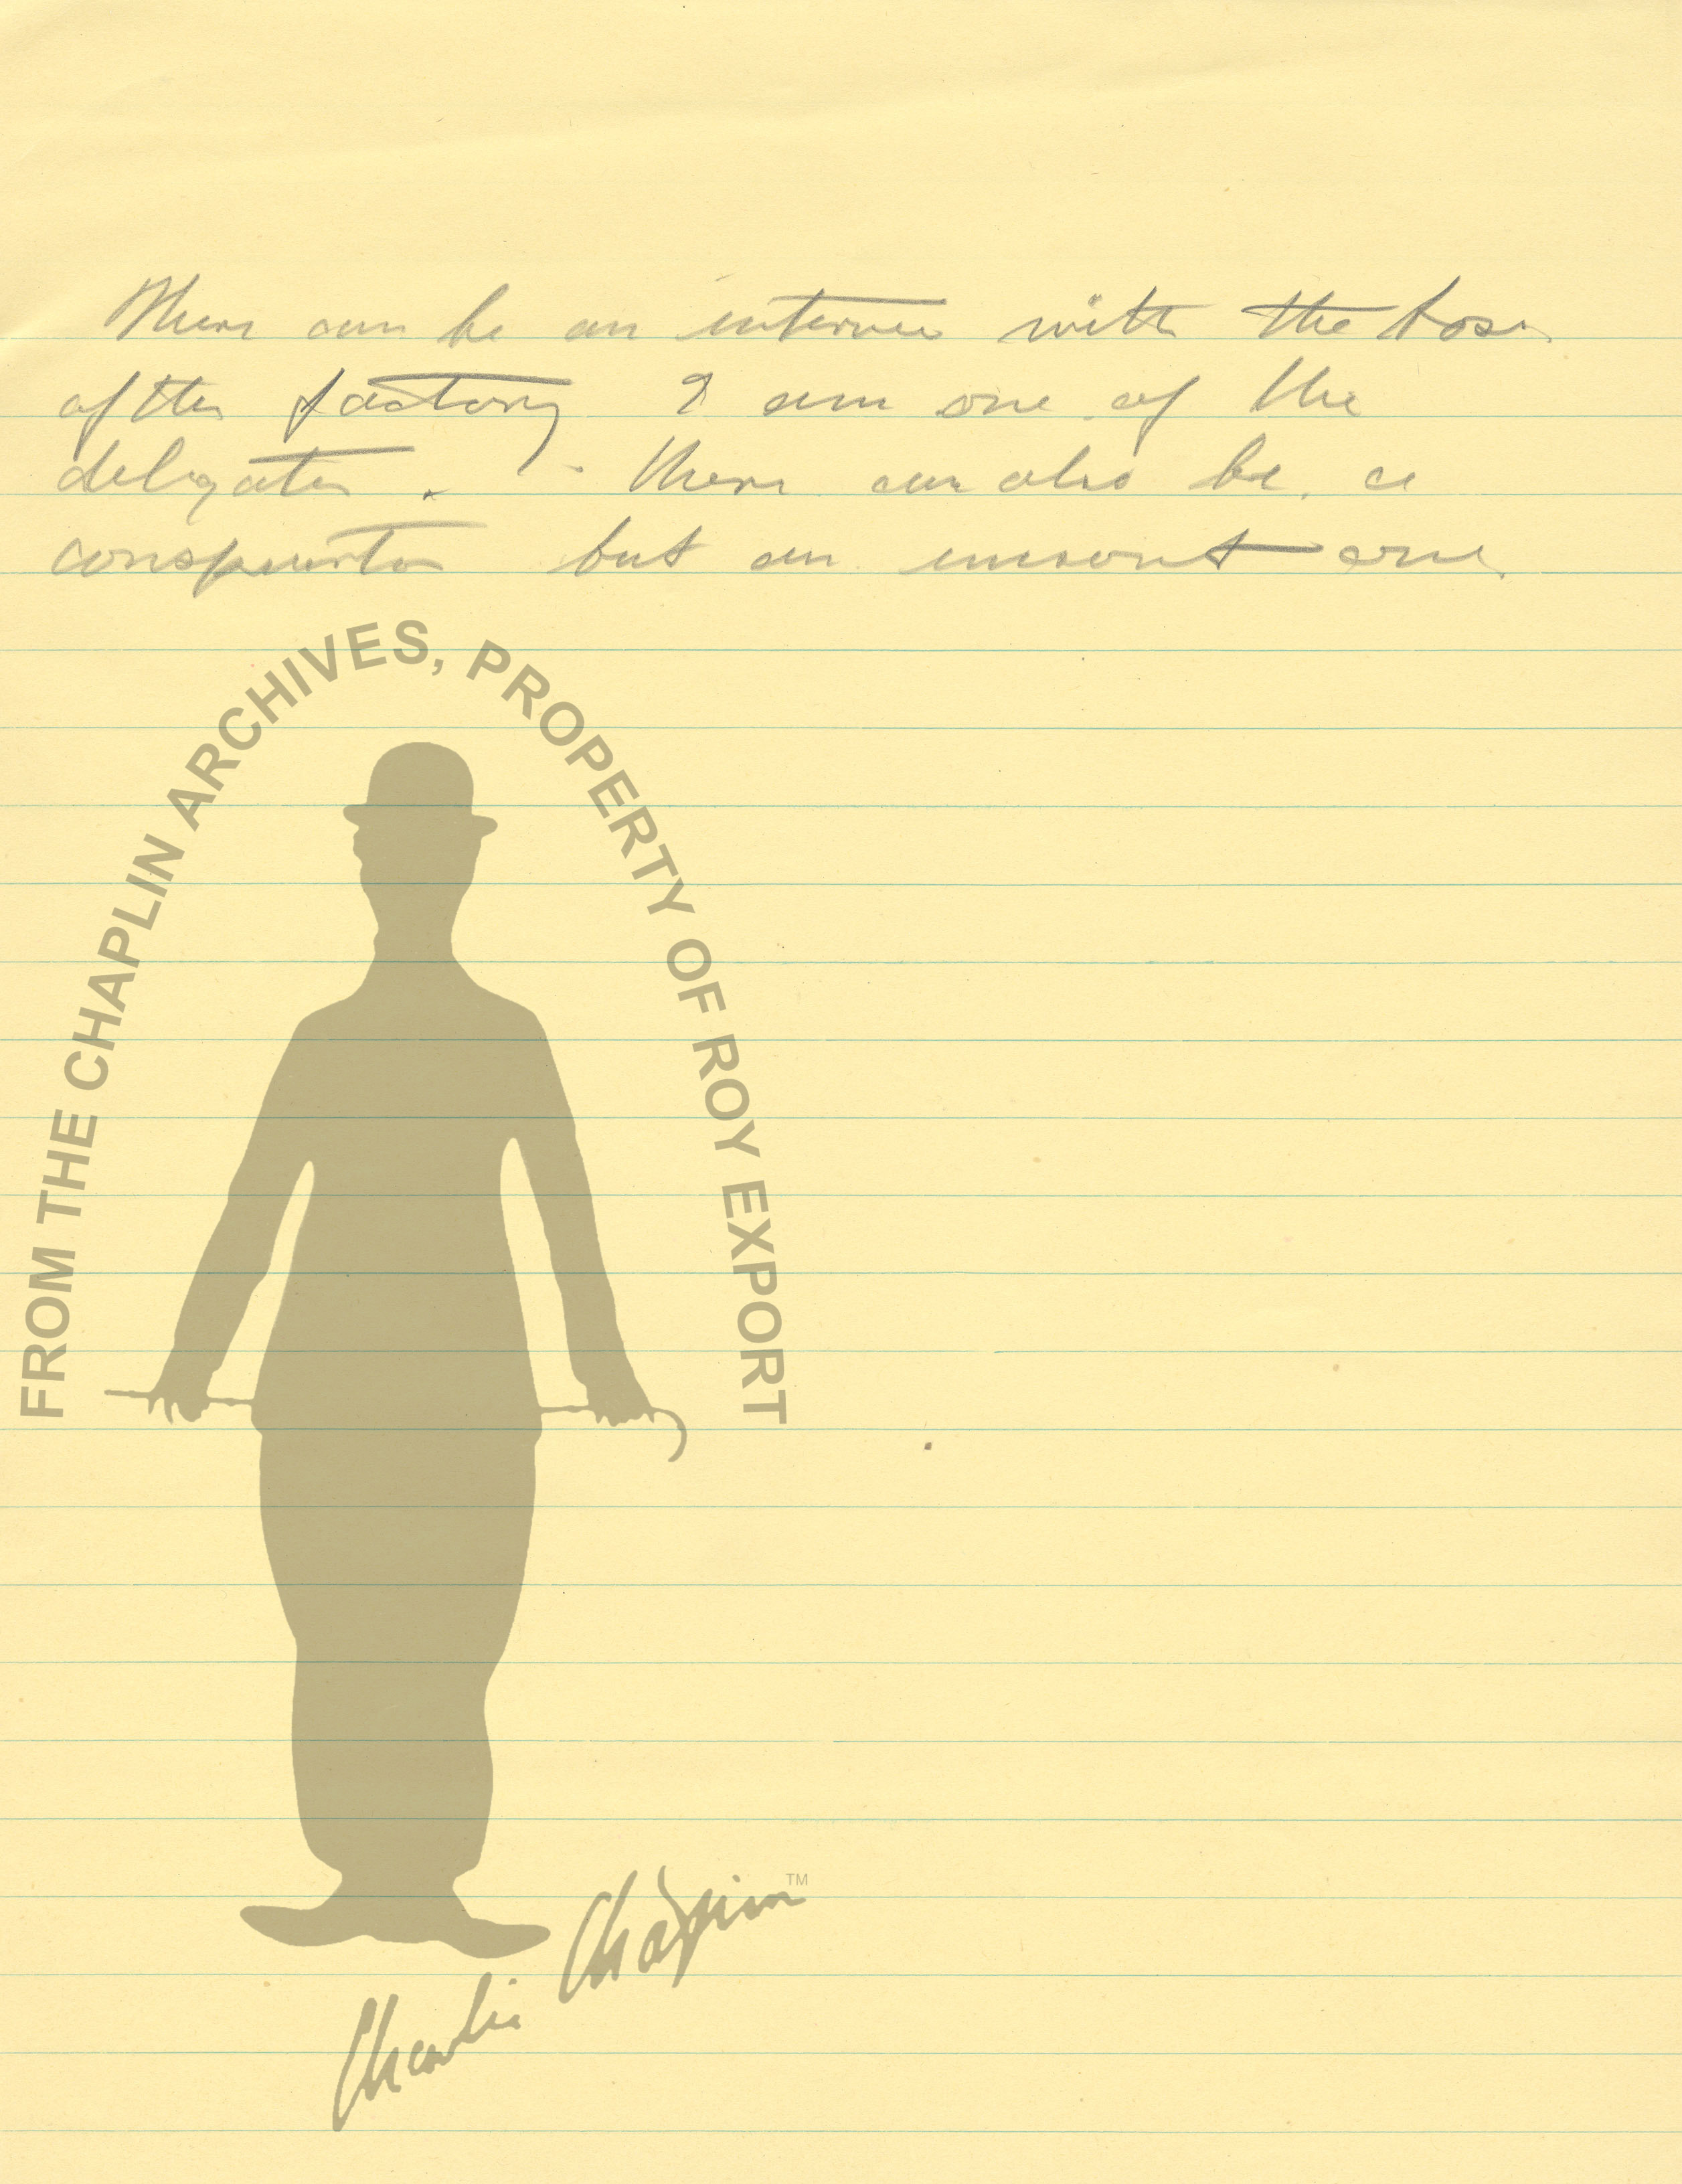 There can be an interview with the boss
of the factory I am one of the
delegates. There can also be a
conspirator but an one
FROM THE CHAPLIN ARCHIVES, PROPERTY OF ROY EXPORT
Charlie Chaplin TM